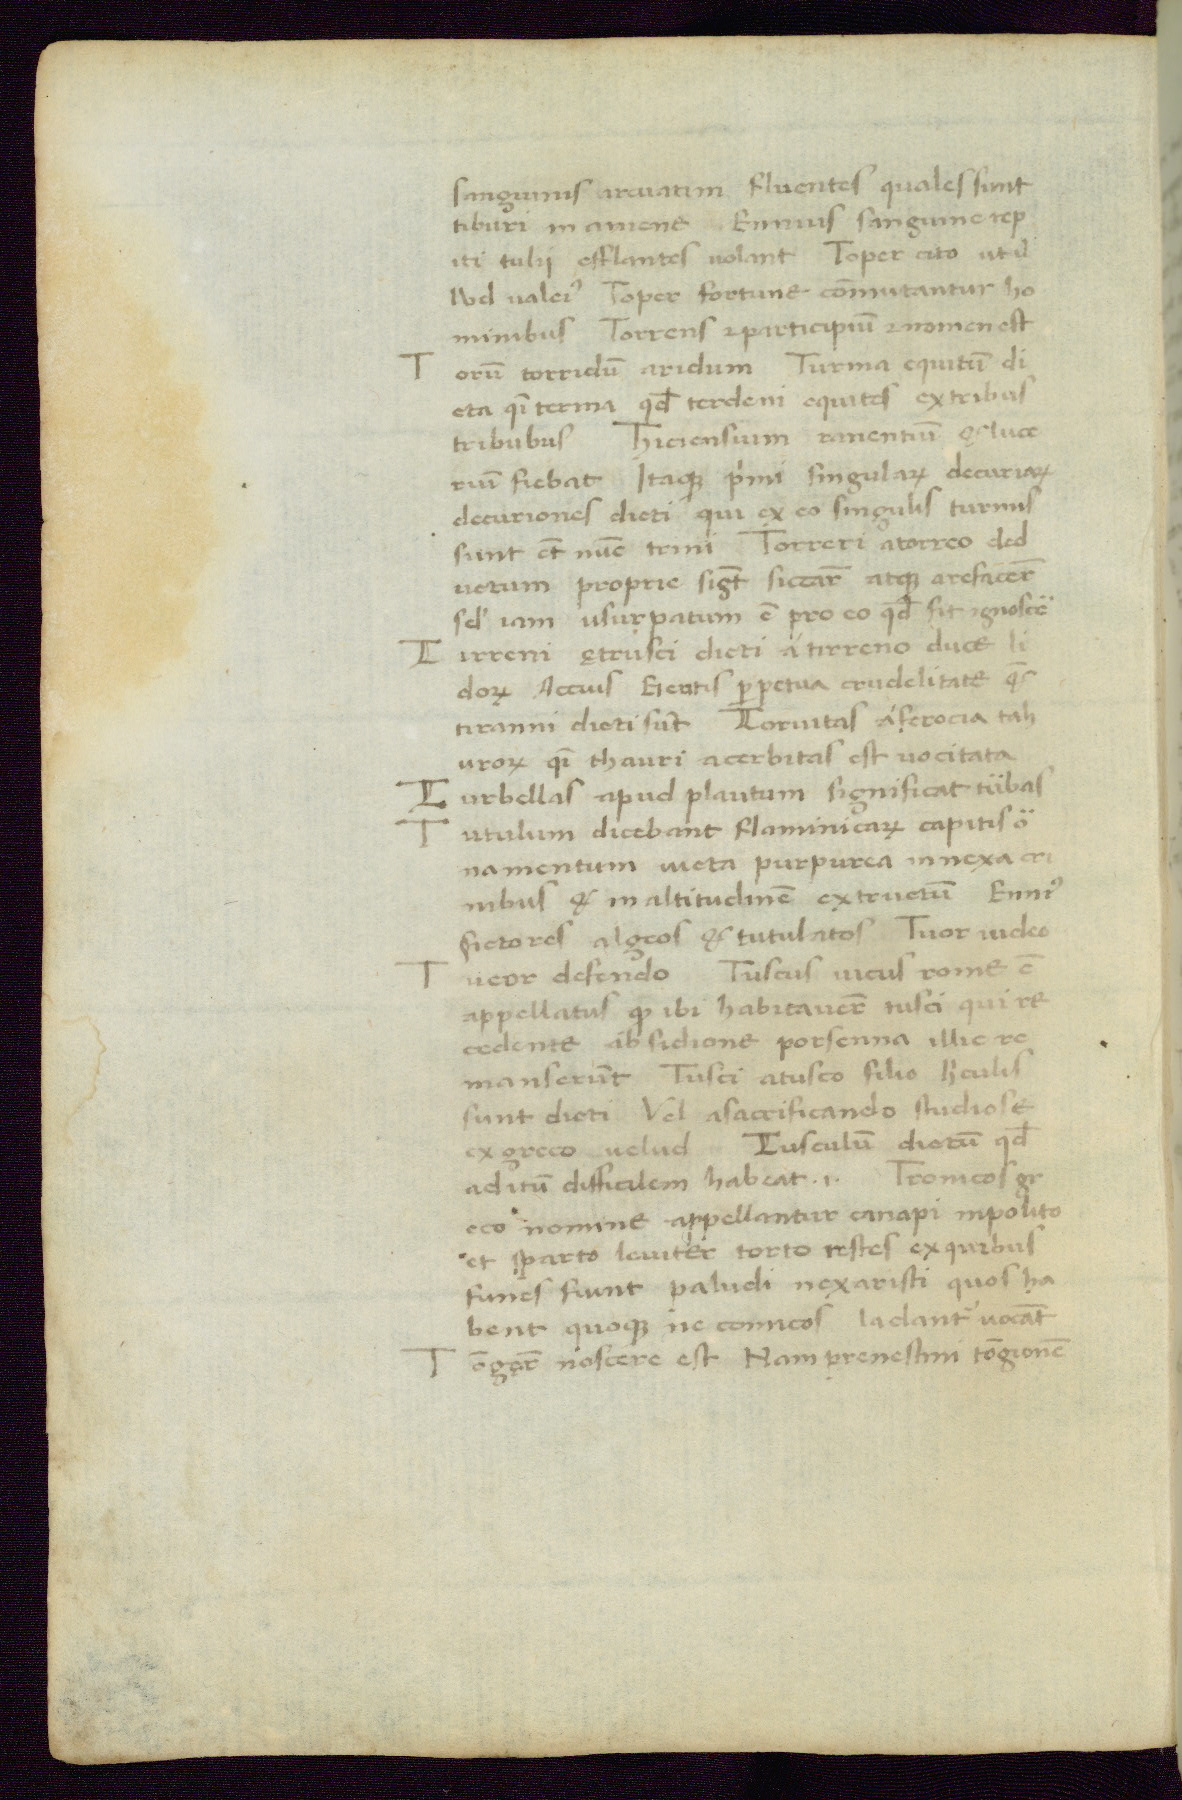 sanguinis arcuatim fluentes quales sunt
tiburi in aniene . Ennius sanguine rep
iti tulij efflantes volant Toper cito ut il
lud valeꝰ Toper fortune cōmutantur ho
minibus Torrens ⁊ participiū ⁊ nomen est
T orū torridū aridum Turma equitū di
cta qͣi terma qd̄ terdeni equites ex tribus
tribubus Thiciensium ranentiū & luce
riū fiebat Itaqꝫ pⁱmi singulaꝝ decuriaꝝ
decuriones dicti qui ex eo singulis turmis
sunt ēt nūc trini Torreri a torreo ded
uctum proprie sigt̄ siccar̄ atqꝫ arefacer̄
sd' iam usurpatum ē pro eo qd̄ sit ignosce
T irreni ętrusci dicti a tirreno duce li
doꝝ Accius Gentis ꝑpetua crudelitate q̄
tiranni dicti sūt Toruitas a ferocia tah
uroꝝ qͣi thauri acerbitas est uocitata
T urbellas apud plautum significat tubas
T utulum dicebant flaminicaꝝ capitis o
namentum uicta purpurea innexa cri
nibus & in altitudinē extructū Enniꝰ
fictores algeos & tutulatos Tuor uideo
T ueor defendo Tuscus uicus rome ē
appellatus ꝙ ibi habitauer̄ tusci qui re
cedente ab sidione porsenna illic re
manserūt Tusci a tusco filio hculis
sunt dicti Vel a sacrificando studiose
ex greco uelud Tusculū dictū qd̄
aditū difficilem habeat .i. Tronicos gr
eco nomine appellantur canapi inpolito
et sparto leuiter torto restes ex quibus
funes fiunt paludi nexaristi quos ha
bent quoqꝫ ne comicos ladant' uocāt
T ōger̄ noscere est Nam prenestini tōgionē